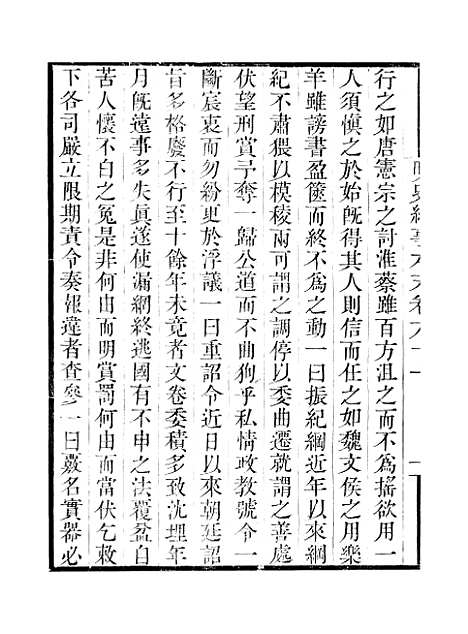 行之如唐憲宗之討淮蔡雖百方沮之而不爲搖欲用一
人須愼之於始旣得其人則信而任之如魏文侯之用樂
羊雖謗書盈篋而終不爲之動一曰振紀綱近年以來綱
紀不肅猥以模稜兩可謂之調停以委曲遷就謂之善處
伏望刑賞予奪一歸公道而不曲狥乎私情政敎號令一
斷宸衷而勿紛更於浮議一曰重詔令近日以來朝廷詔
旨多格廢不行至十餘年未竟者文卷委積多致沈埋年
月旣遠事多失眞遂使漏網終逃國有不申之法覆盆自
苦人懷不白之冤是非何由而明賞罰何由而當伏乞敕
下各司嚴立限期責令奏報違者查參一曰覈名實器必